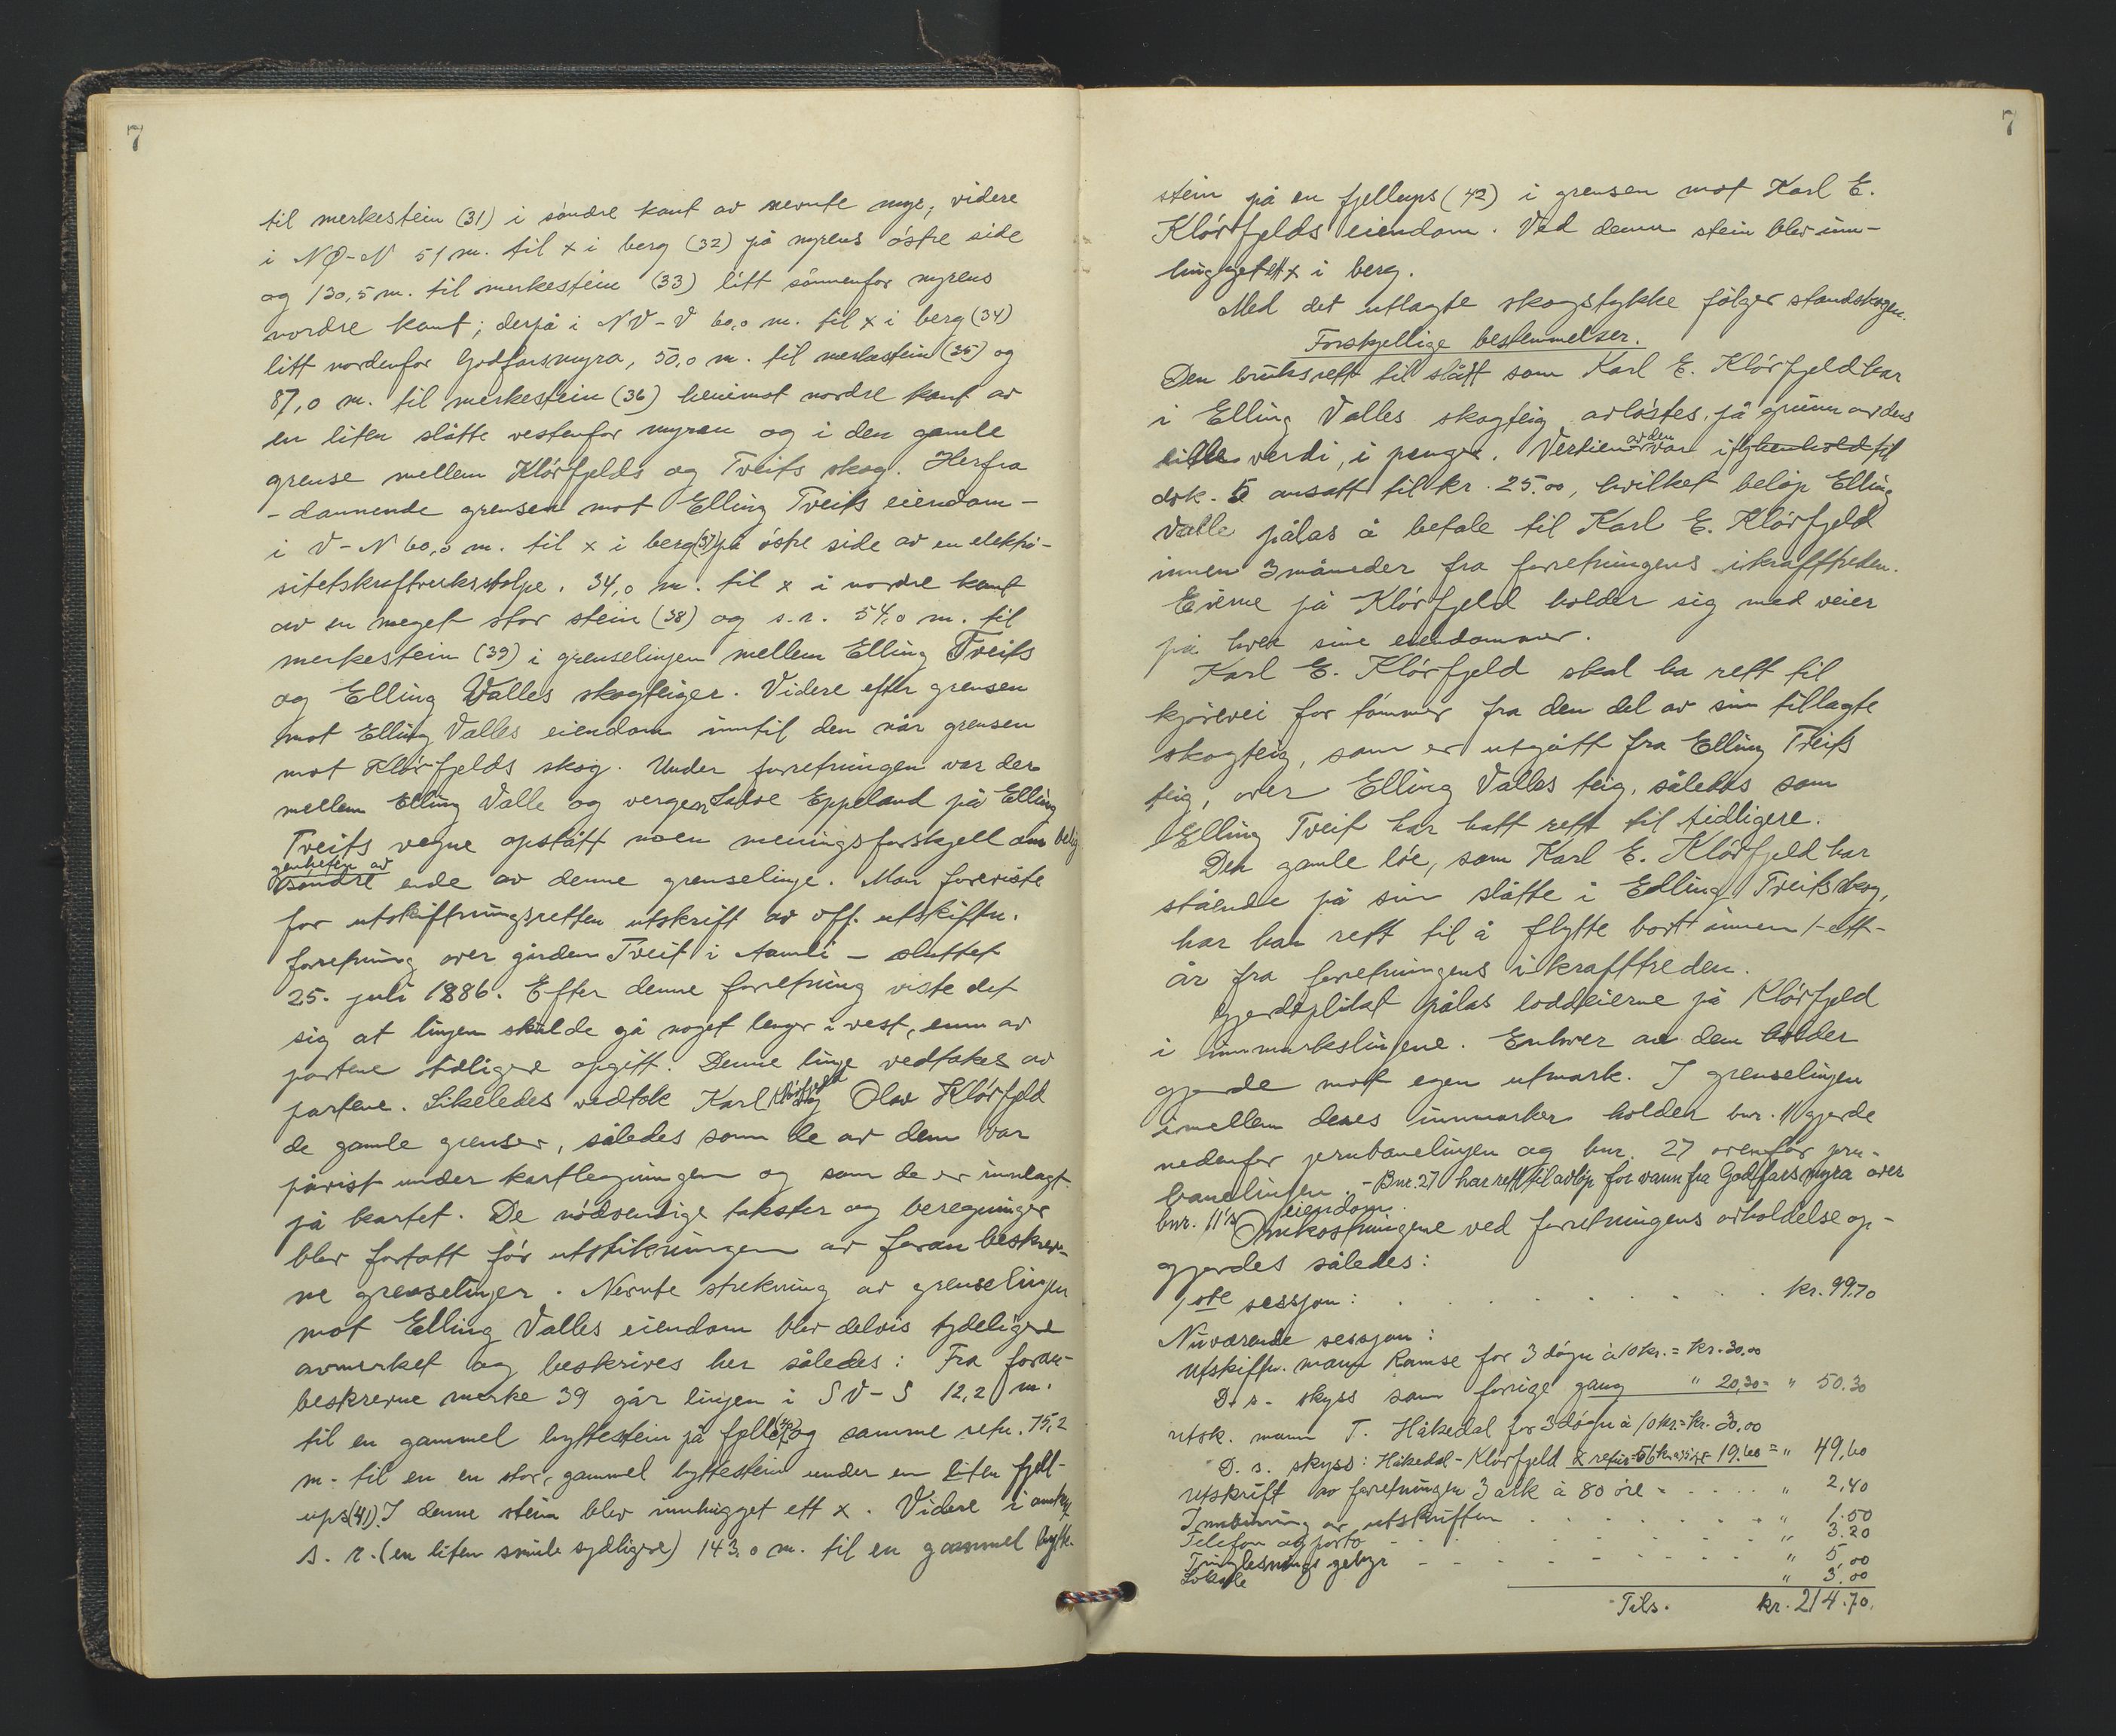 7
til merkestein (31) i söndre kant av nevnte myr; videre
i NØ-N 51 m. til x i berg (32) på myrens östre side
og 130,5 m. til merkestein (33) litt sönnenfor myrens
nordre kant; derpå i NV-V 60,0 m. til x i berg (34)
litt nordenfor Godfarsmyra, 50,0 m. til merkestein (35) og
87,0 m. til merkestein (36) henimot nordre kant av
en liten slåtte vestenfor myren og i den gamle
grense mellem Klörfjelds og Tveits skog. Herfra
- dannende grensen mot Elling Tveits eiendom -
i V-N 60,0 m. til x i berg (37) på östre side av en elektri-
sitetskraftverksstolpe. 34,0 m. til x i nordre kant
av en meget stor stein (38) og s.r. 54,0 m. til
merkestein (39) i grenselinjen mellem Elling Tveits
og Elling Valles skogteiger. Videre efter grensen
mot Elling Valles eiendom inntil den når grensen
mot Klörfjelds skog. Under forretningen var der
mellem Elling Valle og vergen Salve Eppeland på Elling
Tveits vegne opstått noen meningsforskjell om belig
genheten av
söndre ende av denne grenselinje. Man foreviste
for utskiftningsretten utskrift av off. utskiftn.
forretning over gården Tveit i Aamli - sluttet
25. juli 1886. Efter denne forretning viste det
sig at linjen skulde gå noget lenger i vest, enn av
partene tidligere opgitt. Denne linje vedtakes av
partene. Likeledes vedtok Karl Klörfjeld og Olav Klörfjeld
de gamle grenser, således som de av dem var
påvist under kartlegningen og som de er innlagt
på kartet. De nödvendige takster og beregninger
blev fortatt för utstikningen av foran beskrev-
ne grenselinjer. Nevnte strekning av grenselinjen
mot Elling Valles eiendom blev delvis tydeligere
avmerket og beskrives her således: Fra foran-
beskrevne merke 39 går linjen i SV-S 12,2 m.
til en gammel byttestein på fjell (40) og samme retn. 75,2
m. til en en stor, gammel byttestein under en liten fjell-
ups (41). I denne stein blev innhugget ett x. Videre i omtr.
s. r. (en liten smule sydligere) 143,0 m. til en gammel bytte-
7
stein på en fjellups (42) i grensen mot Karl E.
Klörfjelds eiendom. Ved denne stein blev inn-
hugget ett x i berg.
Med det utlagte skogstykke fölger standskogen.
Forskjellige bestemmelser.
Den bruksrett til slått som Karl E. Klörfjeld har
i Elling Valles skogteig avlöstes, på grunn av dens
lille verdi, i penger. Verdien av den var i henhold til
dok. 5 ansatt til kr. 25.00, hvilket belöp Elling
Valle pålas å betale til Karl E. Klörfjeld
innen 3 måneder fra forretningens ikrafttreden.
Eierne på Klörfjeld holder sig med veier
på hver sine eiendommer.
Karl E. Klörfjeld skal ha rett til
kjörevei for tömmer fra den del av sin tillagte
skogteig, som er utgått fra Elling Tveits
teig, over Elling Valles teig, således som
Elling Tveit har hatt rett til tidligere.
Den gamle löe, som Karl E. Klörfjeld har
stående på sin slåtte i Elling Tveits skog,
har han rett til å flytte bort innen 1-ett-
år fra forretningens ikrafttreden.
Gjerdeplikt pålas loddeierne på Klörfjeld
i innmarkslinjene. Enhver av dem holder
gjerde mot egen utmark. I grenselinjen
imellem deres innmarker holder bnr. 11 gjerde
nedenfor jernbanelinjen og bnr. 27 ovenfor jern-
banelinjen. - Bnr. 27 har rett til avlöp for vann fra Godfarsmyra over
bnr. 11's eiendom.
Omkostningene ved forretningens avholdelse op-
gjordes således:
1ste sesjon: . . . . . . . . kr. 99.70
Nuværende sesjon:
Utskiftn. mann Ramse for 3 dögn à 10 kr. = kr. 30.00
D. s. skyss som forrige gang " 20,30 = " 50.30
utsk. mann T. Håkedal for 3 dögn à 10 kr. = kr. 30,00
D. s. skyss: Håkedal - Klörfjeld & retur = 56 km à 35 öre = 19.60 = " 49,60
Utskrift av forretningen 3 ark à 80 öre = . . . . " 2,40
Innbinning av utskriften . . . . . . " 1.50
Telefon og porto - - - - - - " 3.20
Tinglesnings gebyr - - - - - - " 5,00
Lokale " 3.00
Tils. kr. 214.70.